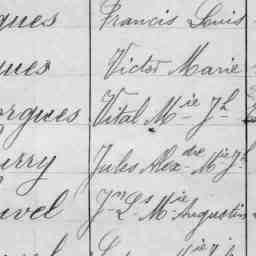 ques Francis Louis
ques Victor Marie
orgues Vital M^ie J^h
urry Jules Alex^dre M^ie J^h
uvel J^n L^s M^ie Augustin